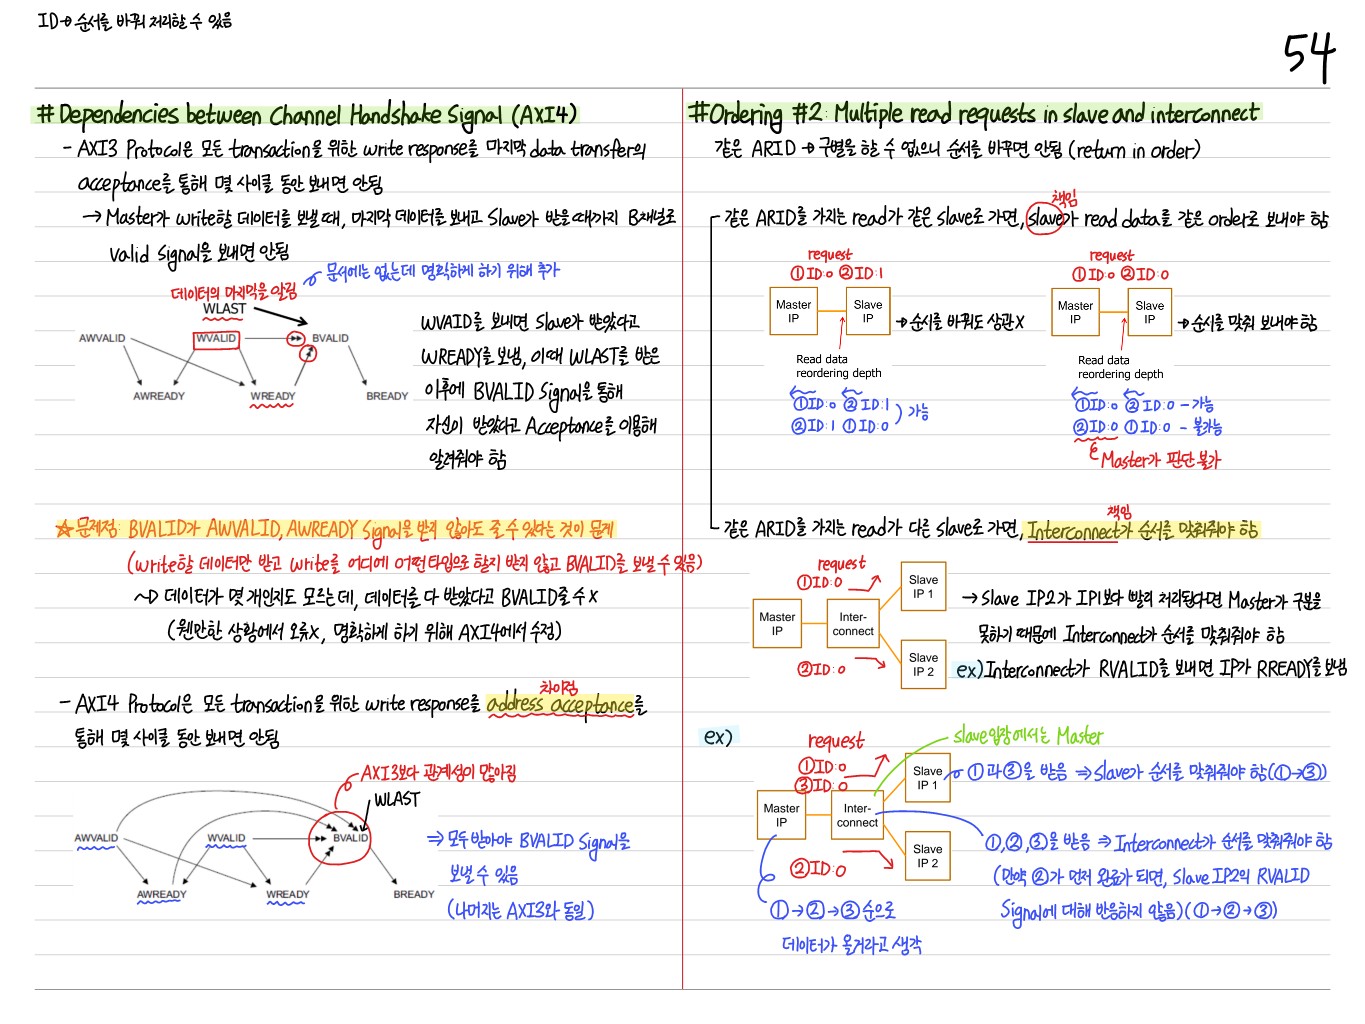 ID→순서를 바꿔 처리할 수 있음
54
# Dependencies between Channel Handshake Signal (AXI4)
- AXI3 Protocol은 모든 transaction을 위한 write response를 마지막 data transfer의
acceptance를 통해 몇 사이클 동안 보내면 안됨
→ Master가 write할 데이터를 보낼 때, 마지막 데이터를 보내고 Slave가 받을 때까지 B채널로
valid signal을 보내면 안됨
문서에는 없는데 명확하게 하기 위해 추가
데이터의 마지막을 알림
WLAST
AWVALID
WVALID
BVALID
AWREADY
WREADY
BREADY
WVAID를 보내면 Slave가 받았다고
WREADY를 보냄, 이때 WLAST를 받은
이후에 BVALID Signal을 통해
자신이 받았다고 Acceptance를 이용해
알려줘야 함
☆ 문제점: BVALID가 AWVALID, AWREADY Signal을 받지 않아도 줄 수 있다는 것이 문제
(write할 데이터만 받고 write를 어디에 어떤 타입으로 할지 받지 않고 BVALID를 보낼 수 있음)
~> 데이터가 몇 개인지도 모르는데, 데이터를 다 받았다고 BVALID줄 수 X
(웬만한 상황에서 오류X, 명확하게 하기 위해 AXI4에서 수정)
차이점
- AXI4 Protocol은 모든 transaction을 위한 write response를 address acceptance를
통해 몇 사이클 동안 보내면 안됨
AXI3보다 관계성이 많아짐
WLAST
AWVALID
WVALID
BVALID
AWREADY
WREADY
BREADY
⇒ 모두 받아야 BVALID Signal을
보낼 수 있음
(나머지는 AXI3와 동일)
#Ordering #2: Multiple read requests in slave and interconnect
같은 ARID → 구별을 할 수 없으니 순서를 바꾸면 안됨 (return in order)
책임
같은 ARID를 가지는 read가 같은 slave로 가면, slave가 read data를 같은 order로 보내야 함
request
①ID:0 ②ID:1
Master IP
Slave IP
→순서를 바꿔도 상관X
Read data
reordering depth
①ID:0 ②ID:1
②ID:1 ①ID:0
) 가능
request
①ID:0 ②ID:0
Master IP
Slave IP
→순서를 맞춰 보내야 함
Read data
reordering depth
①ID:0 ②ID:0 - 가능
②ID:0 ①ID:0 - 불가능
Master가 판단 불가
책임
같은 ARID를 가지는 read가 다른 slave로 가면, Interconnect가 순서를 맞춰줘야 함
request
①ID:0
Slave IP 1
Master IP
Inter-connect
②ID:0
Slave IP 2
→ Slave IP2가 IP1보다 빨리 처리된다면 Master가 구분을
못하기 때문에 Interconnect가 순서를 맞춰줘야 함
ex) Interconnect가 RVALID를 보내면 IP가 RREADY를 보냄
ex)
slave입장에서는 Master
request
①ID:0
③ID:0
Slave IP 1
①과 ③을 받음 ⇒ Slave가 순서를 맞춰줘야 함 (①→③)
Master IP
Inter-connect
②ID:0
Slave IP 2
①,②,③을 받음 ⇒ Interconnect가 순서를 맞춰줘야 함
(만약 ②가 먼저 완료가 되면, Slave IP2의 RVALID
Signal에 대해 반응하지 않음) (①→②→③)
①→②→③순으로
데이터가 올거라고 생각